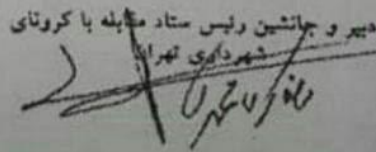 دبیر و جانشین رئیس ستاد مقابله با کرونای
شهرداری تهران